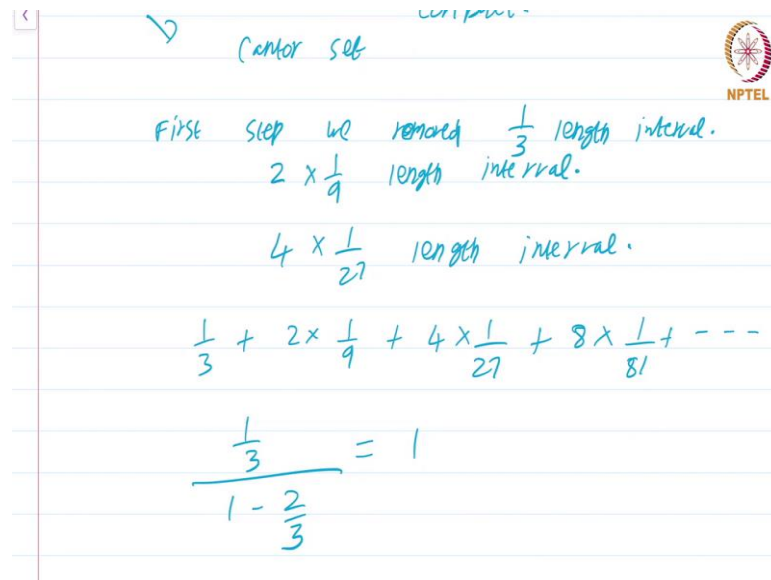 Cantor set
NPTEL
First step we removed 1/3 length interval.
2 × 1/9 length interval.
4 × 1/27 length interval.
1/3 + 2 × 1/9 + 4 × 1/27 + 8 × 1/81 + ---
(1/3)/(1 - 2/3) = 1